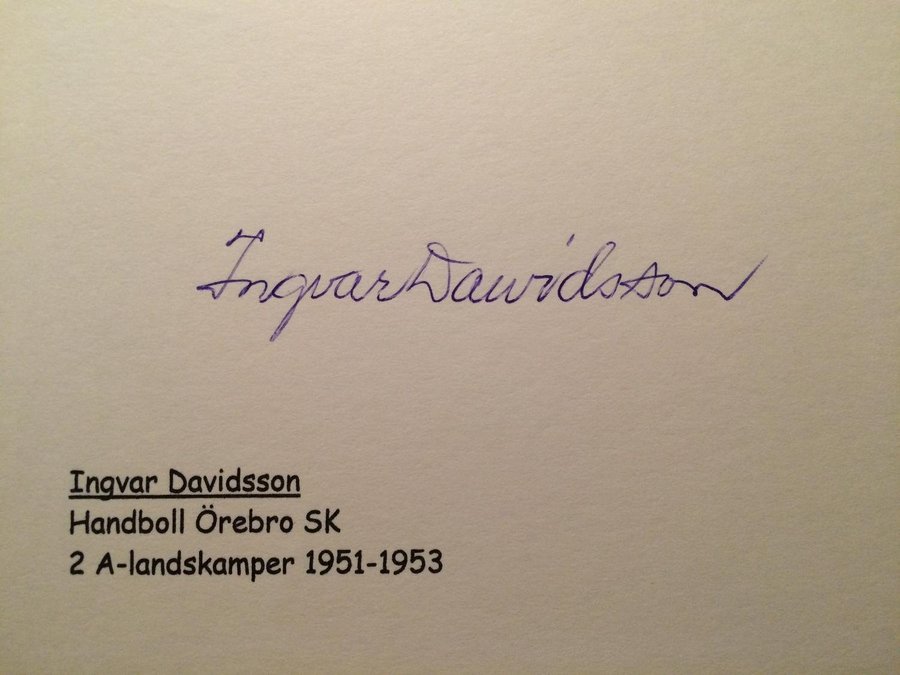 Ingvar Davidsson
Ingvar Davidsson
Handboll Örebro SK
2 A-landskamper 1951-1953